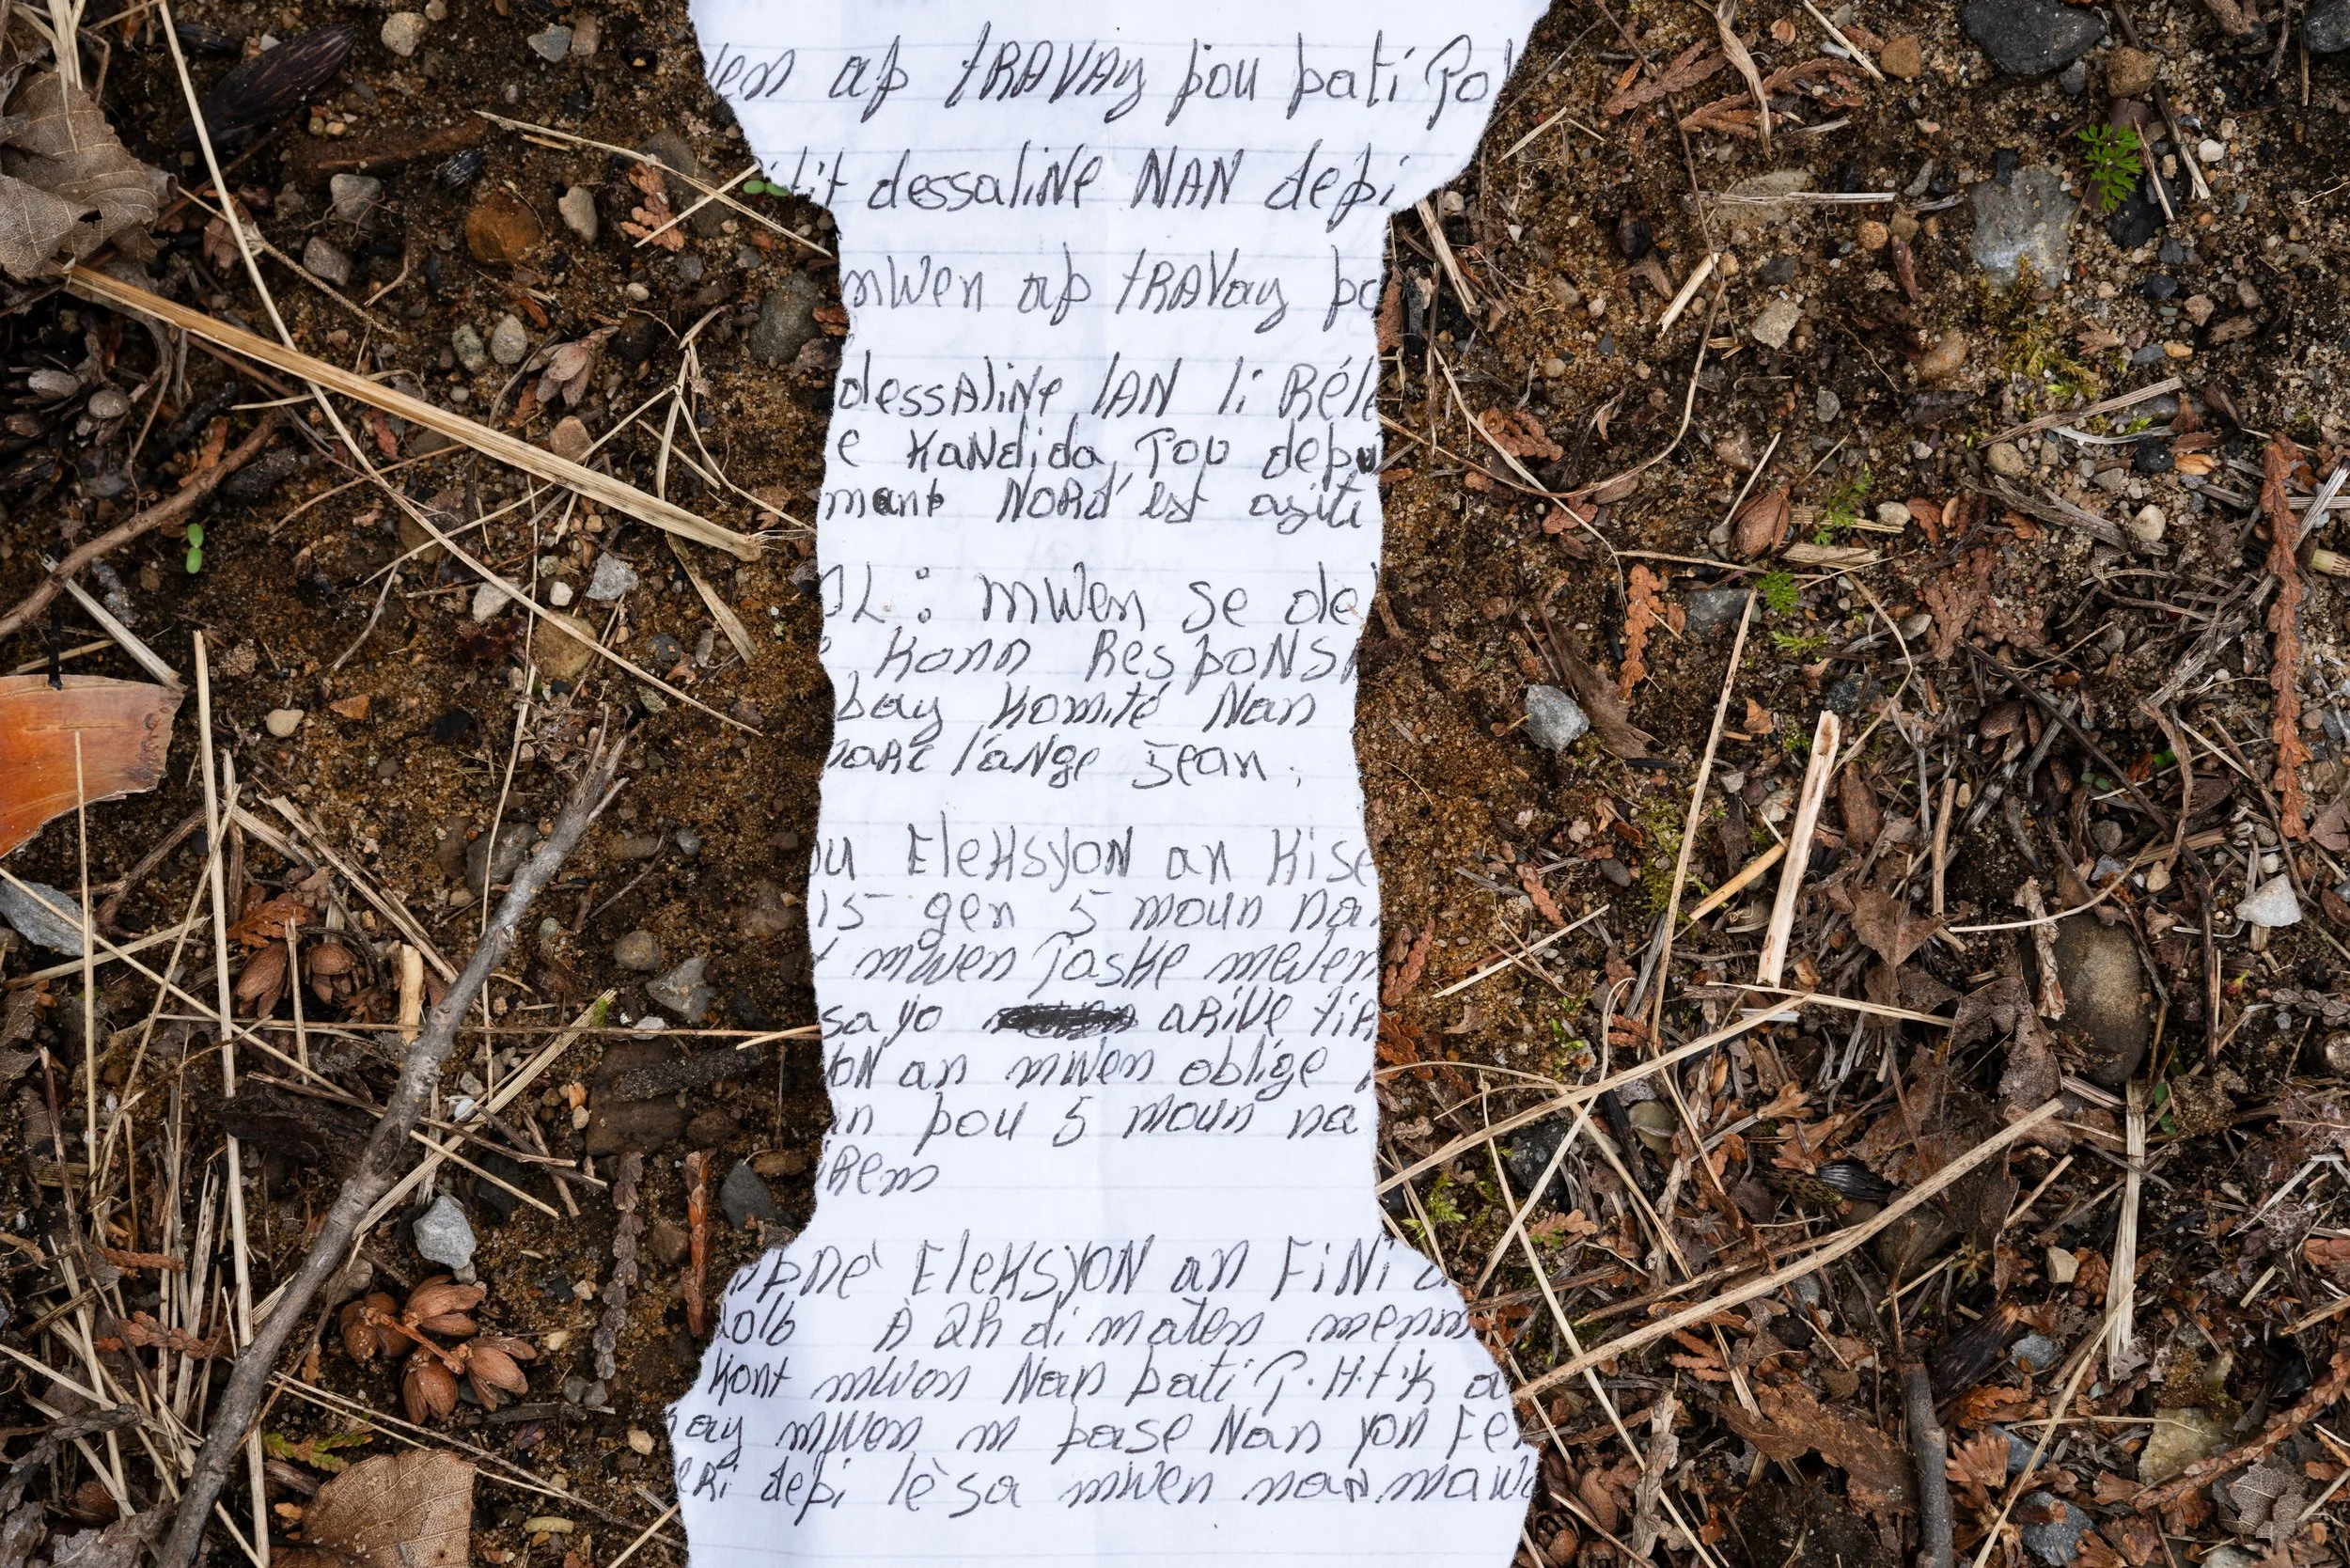 wen ap tRAVAy pou pati Po
tit dessaliNe NAN depi
mWen ap tRAVay po
dessAliNe lAN li Réle
e KaNdida Pou depu
mant NORd'est asiti
OL : mWen se de
Konn ResPoNSA
bay Komité Nan
marc l'aNge Jean.
ou EleKsyoN an Kise
15 gen 5 moun na
mwen Paske mwen
sa yo aRiVe tiR
oN an mwen oblige
in pou 5 moun na
iRem
pné EleKsyoN an FiNi a
2016 À 2h di maten menm
Kont mwen Nan pati P.H.t.K a
ay mwen m pase Nan yon Fe
eRi depi lè sa mwen nan mawo